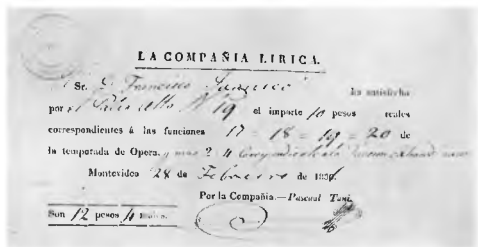 LA COMPAÑIA LIRICA.
Sr. D. Francisco ha satisfecho
por el Palco alto Nº 19 el importe 10 pesos reales
correspondientes á las funciones 17 = 18 = 19 = 20 de
la temporada de Opera. y mas 2 4
Montevideo 28 de Febrero de 183
Por la Compañia.—Pascual Tani.
Son 12 pesos 4 reales.